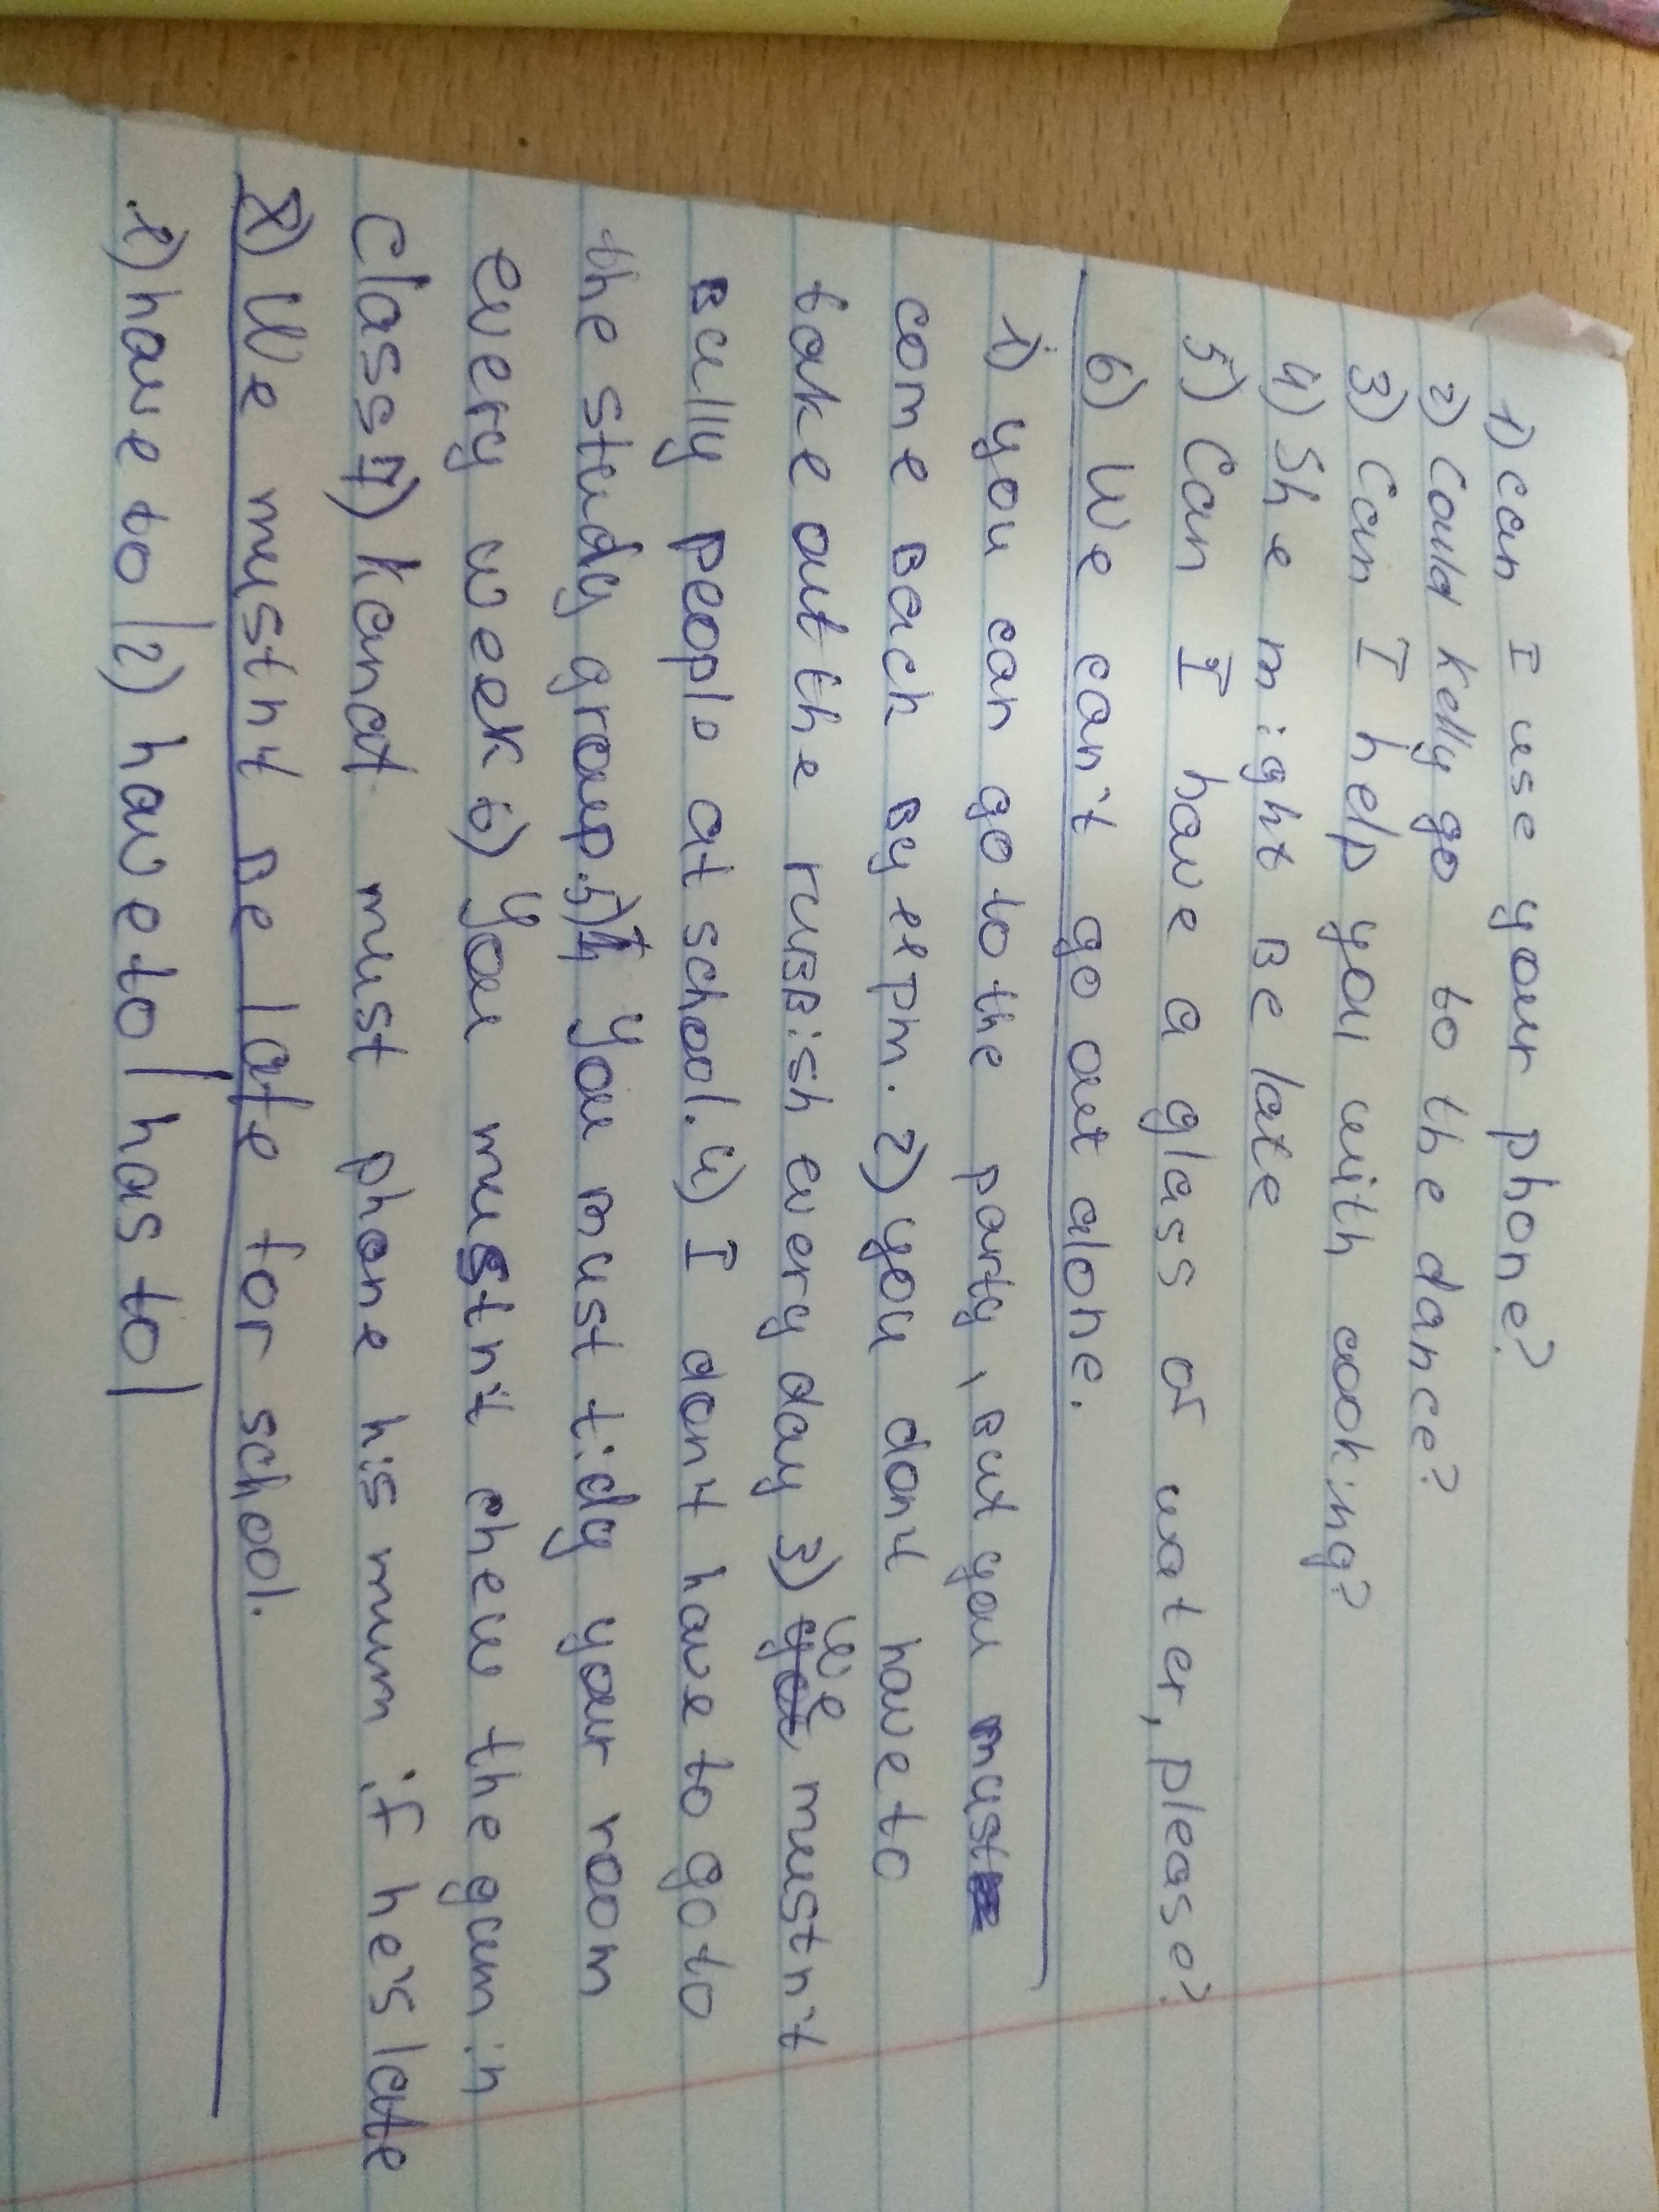 1) can I use your phone?
2) Could kelly go to the dance?
3) Can I help you with cooking?
4) She might be late
5) Can I have a glass of water, please?
6) We can't go out alone.
1) you can go to the party, but you must
come back by 11 pm. 2) you don't have to
take out the rubbish every day 3) we mustn't
bully people at school. 4) I don't have to go to
the study group. 5) You must tidy your room
every week 6) You mustn't chew the gum in
class 7) Kanat must phone his mum if he's late
8) We mustn't be late for school.
1) have to | 2) have to | has to |